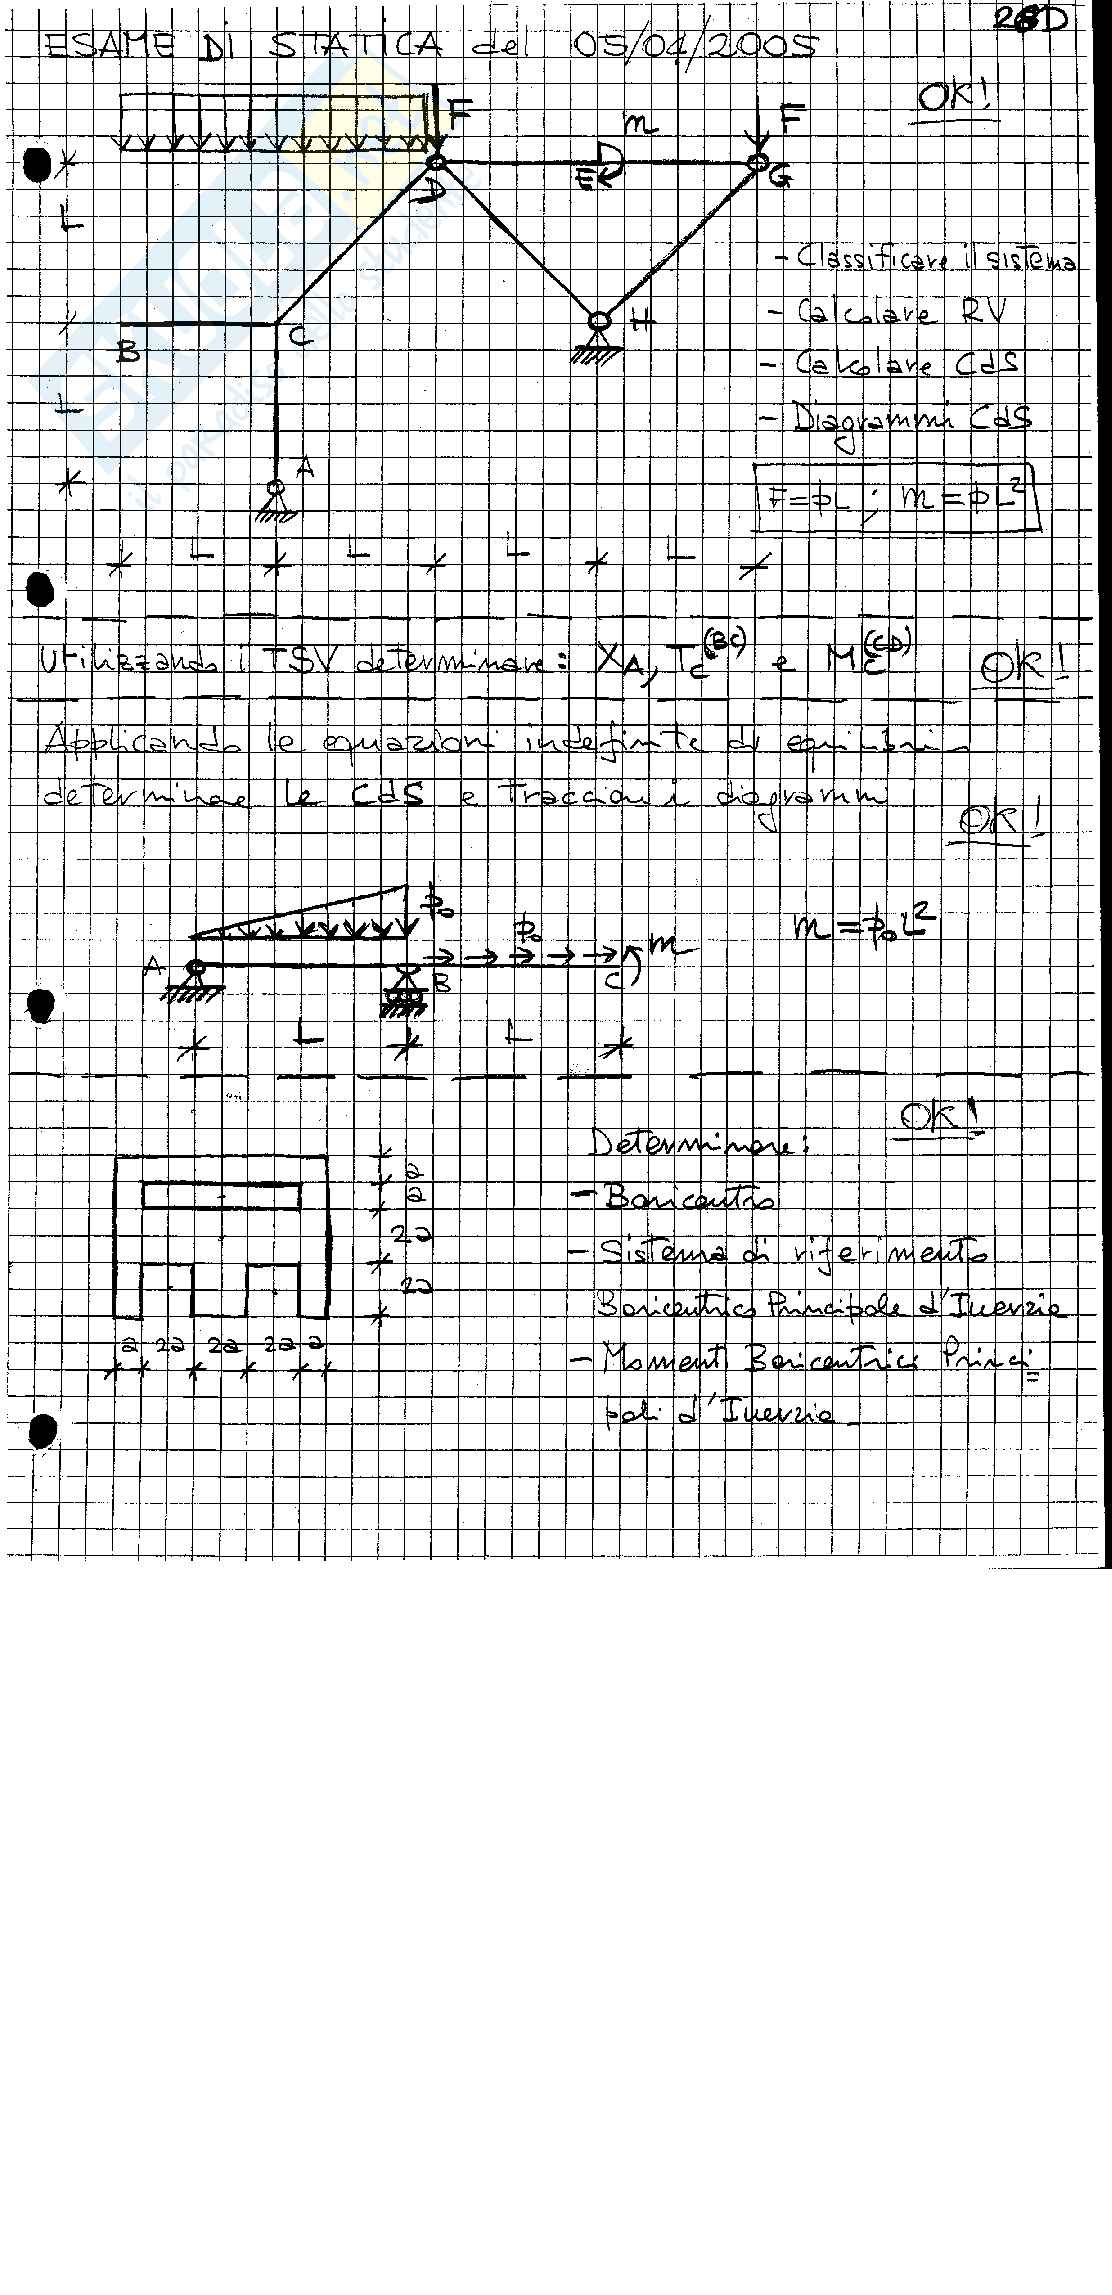 26D
ESAME DI STATICA del 05/04/2005
OK!
F
m
F
D
E
G
L
- Classificare il sistema
B
C
H
- Calcolare RV
- Calcolare CdS
L
- Diagrammi CdS
A
F=pL ; m=pL²
L L L L
Utilizzando i TSV determinare: XA, Tc(BC) e Mc(CD)
OK!
Applicando le equazioni indefinite di equilibrio
determinae le CdS e tracciarei diagrammi
OK!
p₀
p₀
m
m = p₀L²
A
B
C
L L
OK!
Determinare:
a
a
- Baricentro
2a
- Sistema di riferimento
2a
Baricentrico Principale d'Inerzia
a 2a 2a 2a a
- Momenti Baricentrici Princi=
pali d'Inerzia